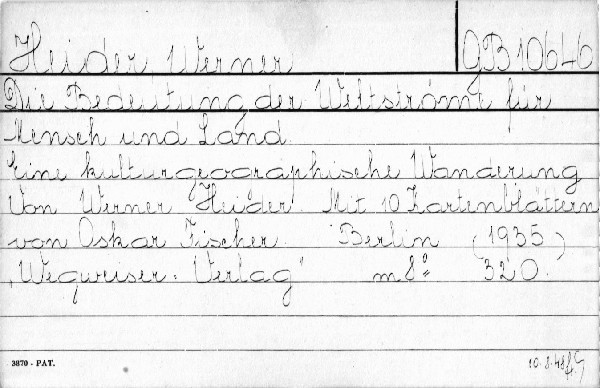 Heider, Werner GB 10646
Die Bedeutung der Weltströme für
Mensch und Land.
Eine kulturgeographische Wanderung
Von Werner Heider. Mit 10 Kartenblättern
von Oskar Fischer. Berlin (1935)
"Wegweiser-Verlag" m8° 320.
3870 - PAT. 10.8.48